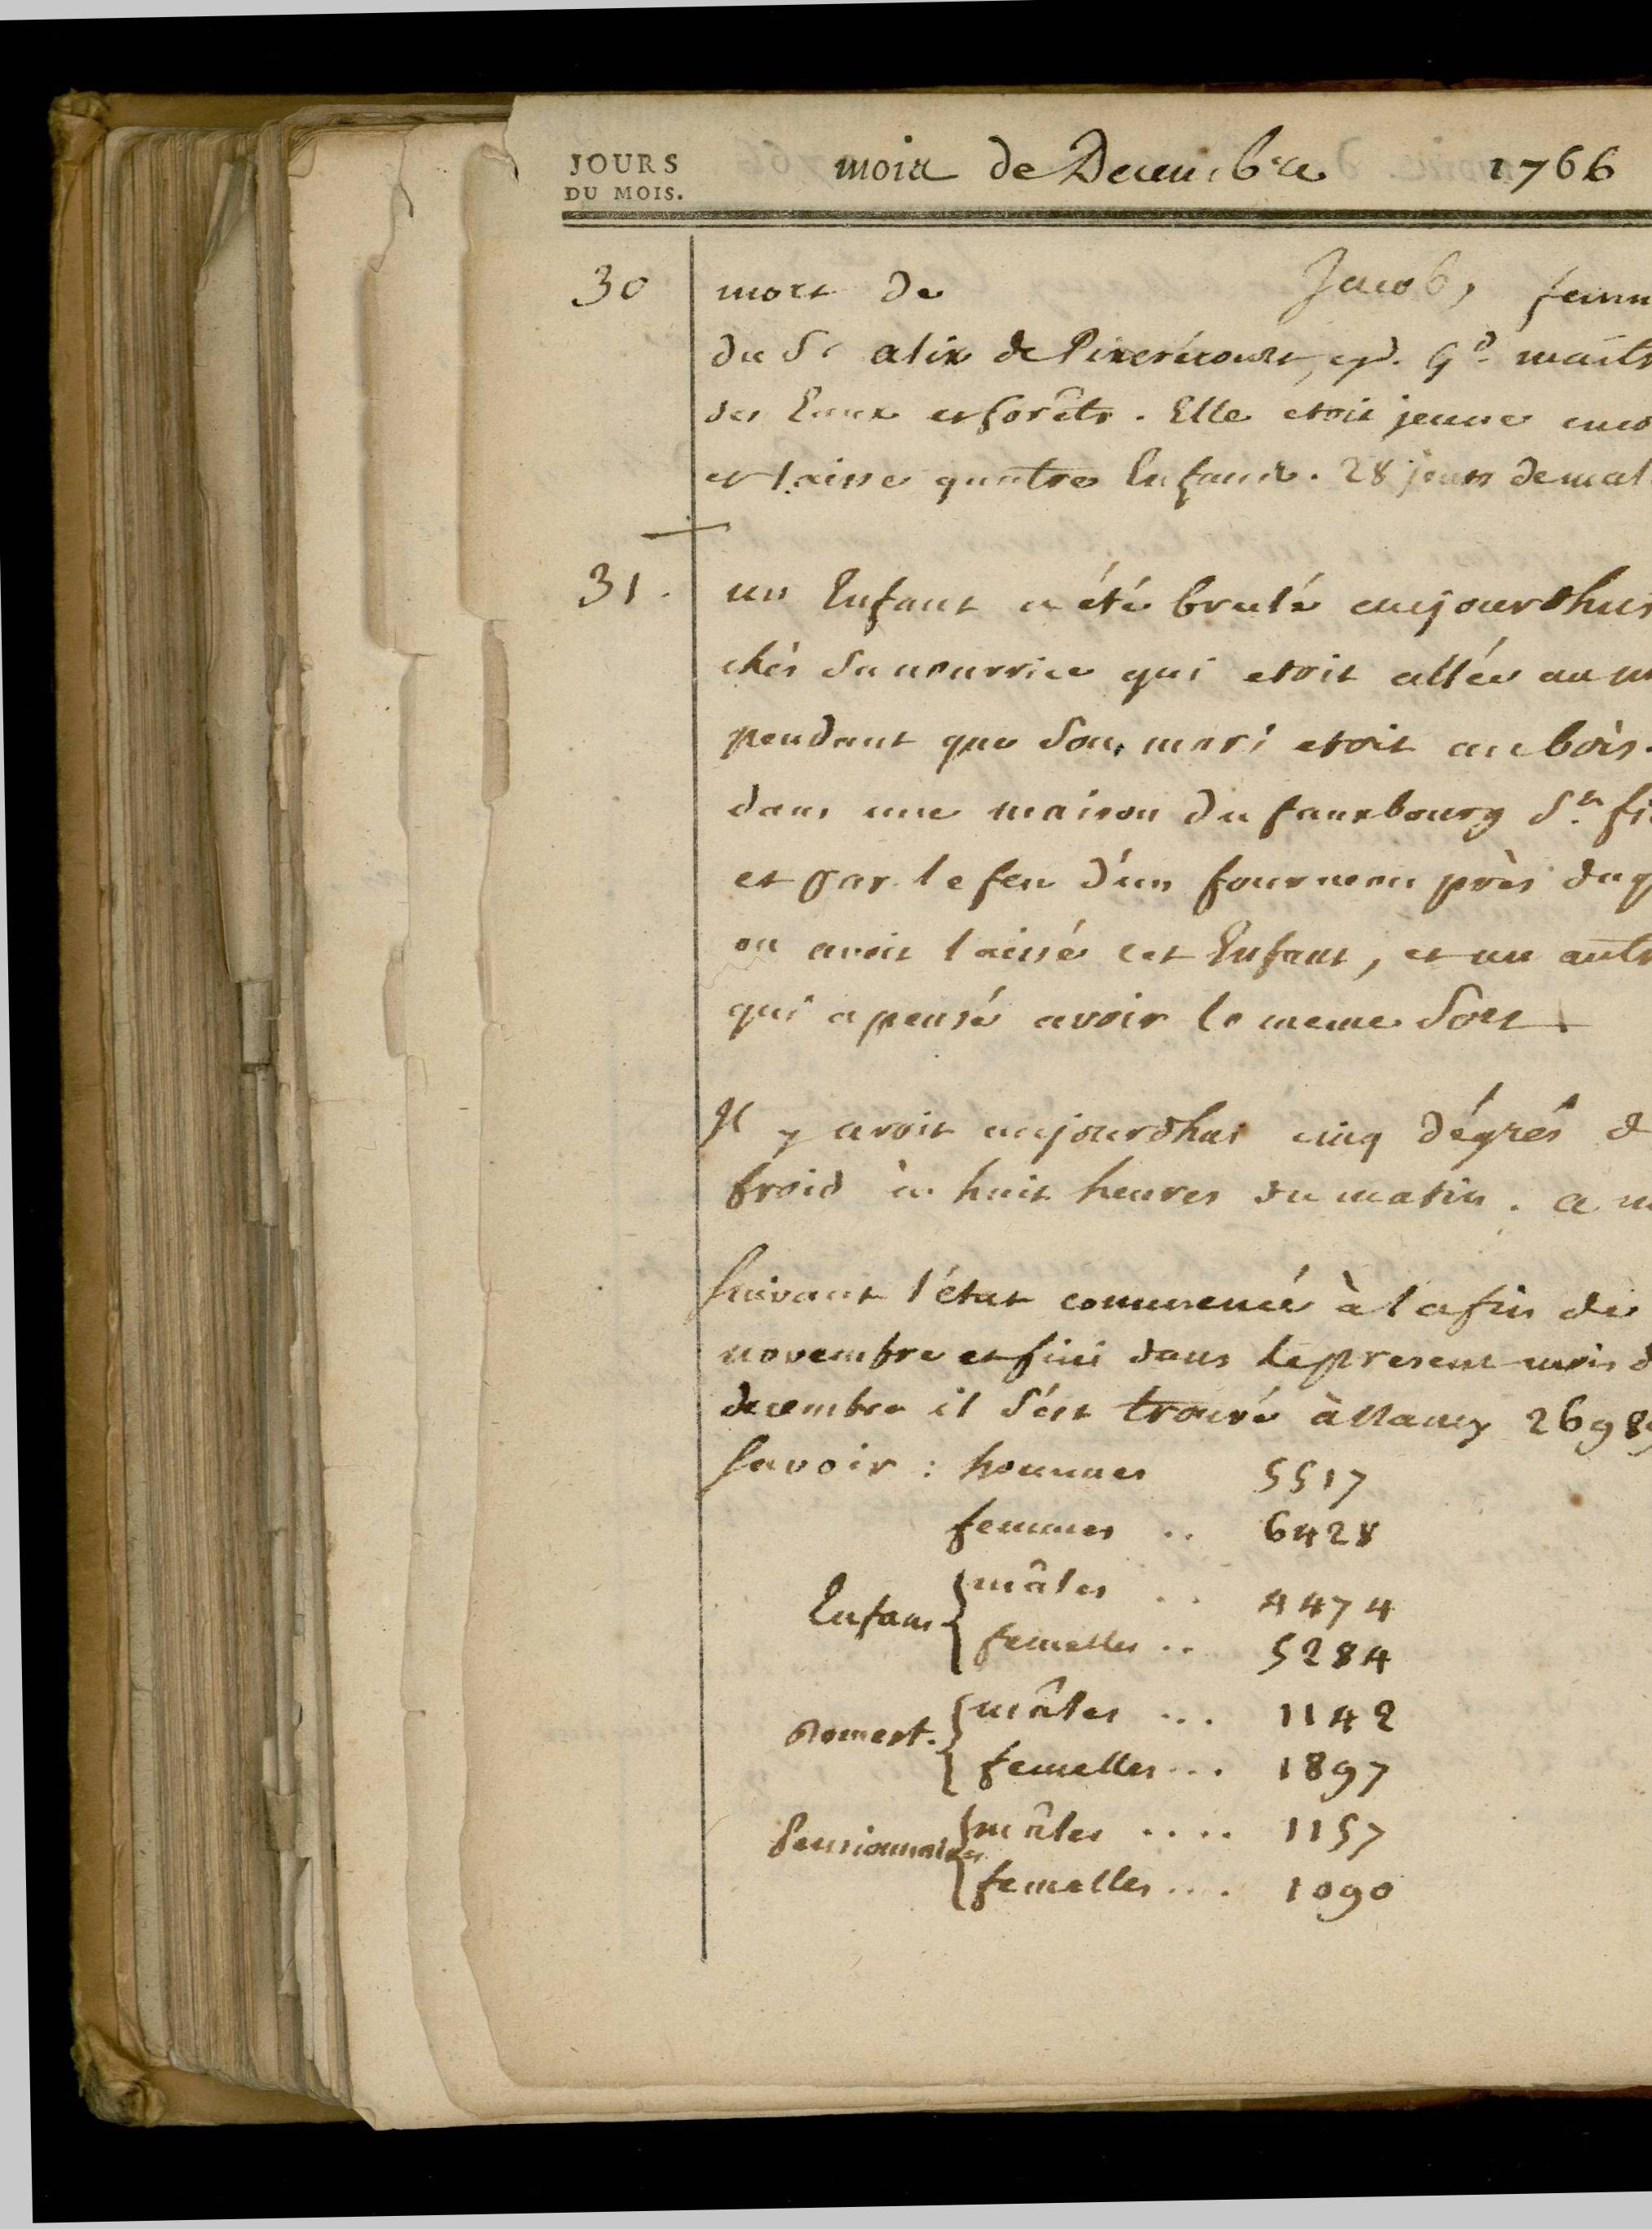 JOURS
DU MOIS.
mois de Decembre 1766
30 mort de Jacob, femm
du Sr alix de Pixerécourt, Gd. maitr
des Eaux et forêts. Elle etoit jeune enco
et laisse quatre Enfans. 28 jours de mal
31. un Enfant a été brulé aujourdhui
chés Sa nourrice qui etoit allée au m
pendant que Son mari etoit au bois.
dans une maison du fauxbourg St. fi
et par le feu d'un fourneau près duq
on avoit laissé cet Enfant, et un autr
qui a pensé avoir le meme Sort
Il y avoit aujourdhui cinq dégrés d
froid à huit heures du matin. a m
Suivant l'état commencé à la fin de
novembre et fini dans le present mois d
decembre il S'est trouvé à Nancy 2698
Savoir : hommes 5517
femmes .. 6428
Enfans { mâles .. 4474
femelles .. 5284
Domest. { mâles ... 1142
femelles ... 1897
Pensionnaires { mâles .... 1157
femelles .... 1090